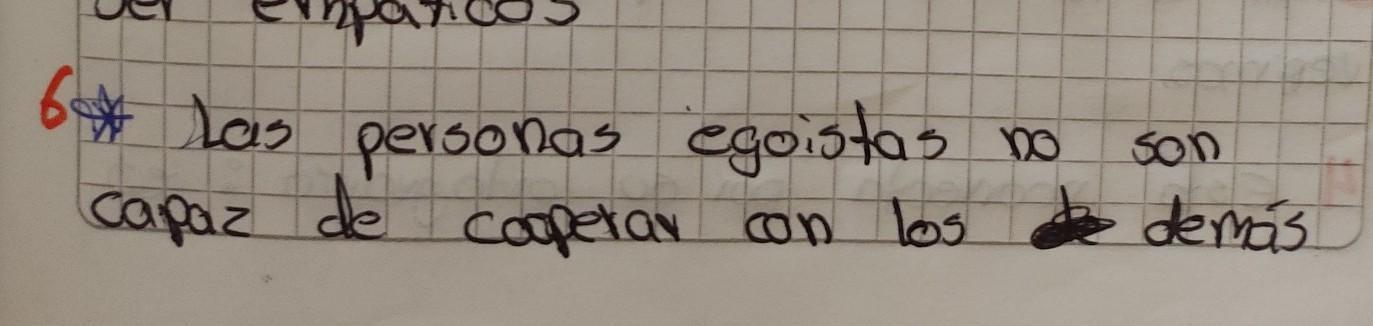 ser empáticos
6* Las personas egoistas no son
capaz de cooperar con los demás